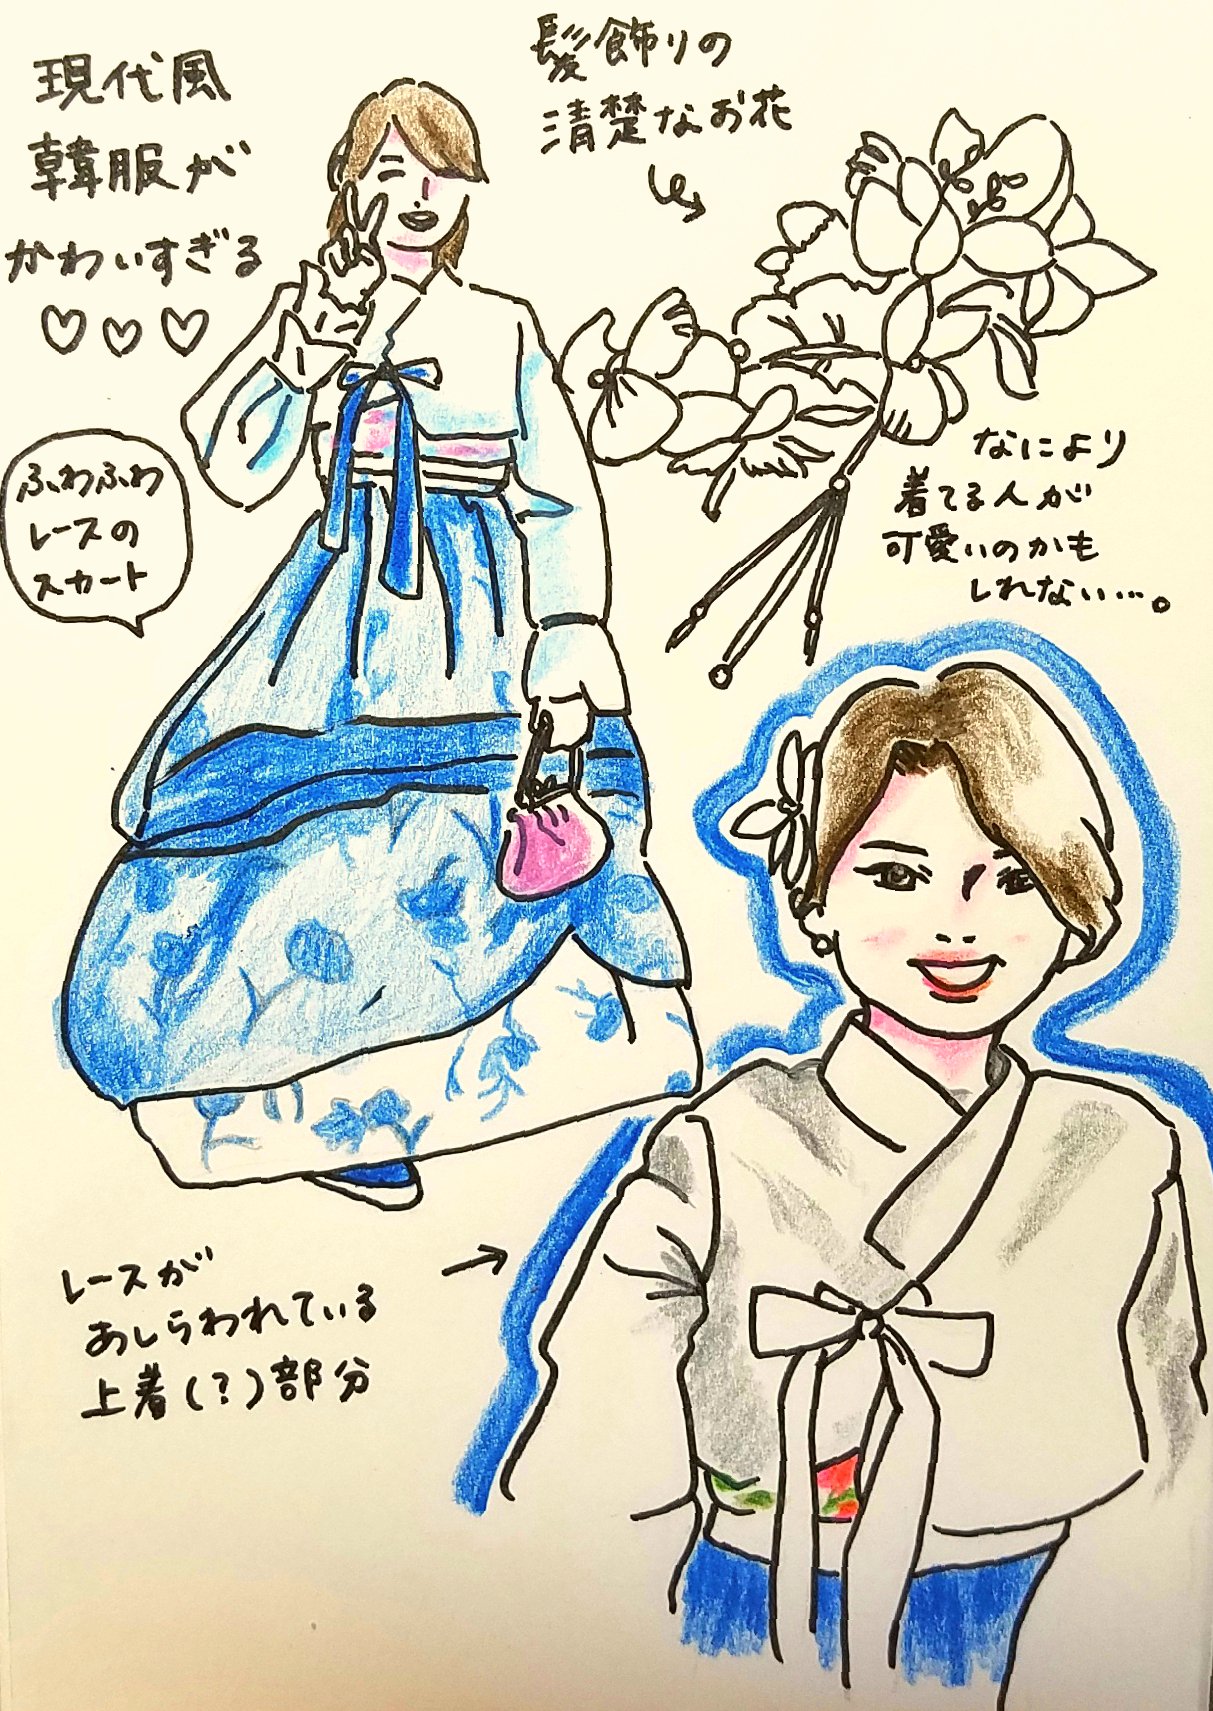 現代風
韓服が
かわいすぎる
♡♡♡
髪飾りの
清楚なお花
ふわふわ
レースの
スカート
なにより
着てる人が
可愛いのかも
しれない…。
レースが
あしらわれている
上着(?)部分